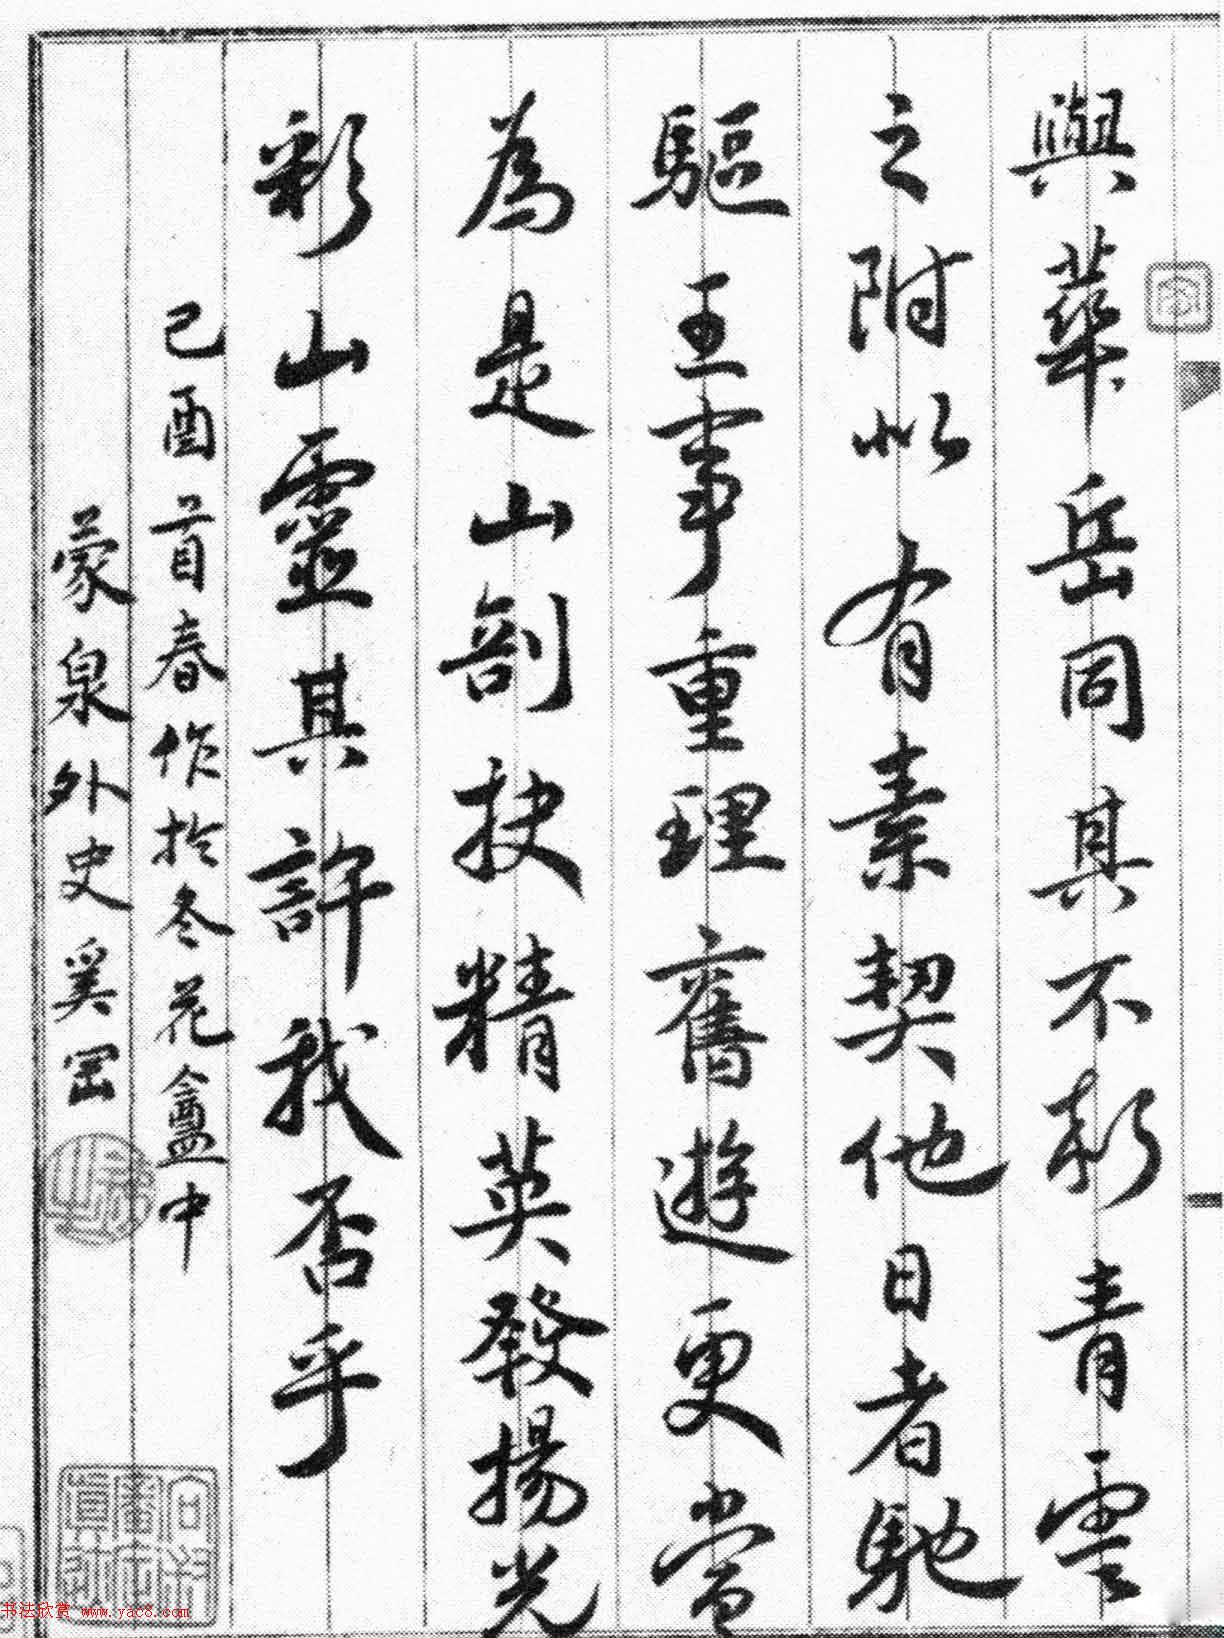 與華岳同其不朽青雲
之附似有素契他日者馳
驅王事重理舊遊更當
為是山剖抉精英發揚光
彩山靈其許我否乎
己酉首春作於冬花盦中
蒙泉外史奚岡
书法欣赏 www.yac8.com